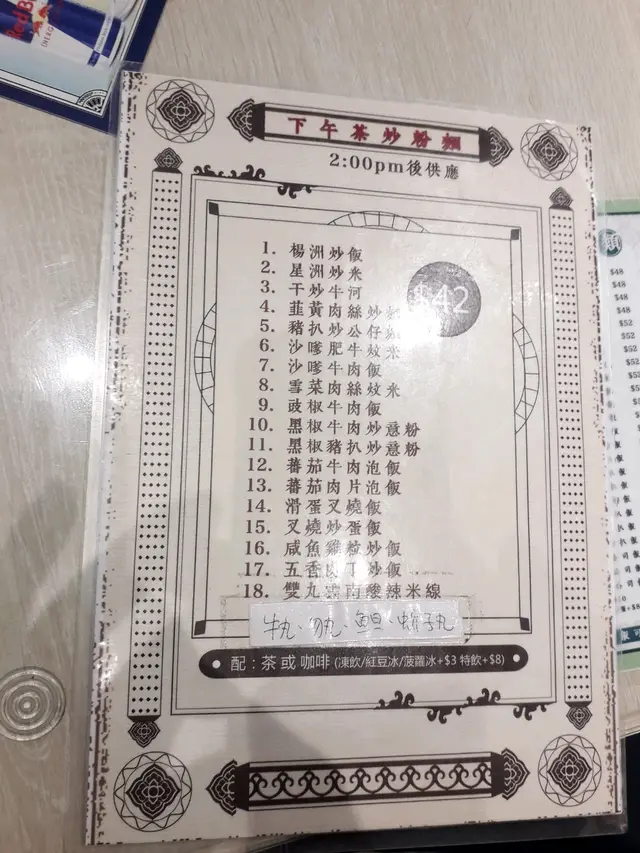 Red Bull
下午茶炒粉麵
2:00pm後供應
$42
1. 楊洲炒飯
2. 星洲炒米
3. 干炒牛河
4. 韮黃肉絲炒麵
5. 豬扒炒公仔麵
6. 沙嗲肥牛炆米
7. 沙嗲牛肉飯
8. 雪菜肉絲炆米
9. 豉椒牛肉飯
10. 黑椒牛肉炒意粉
11. 黑椒豬扒炒意粉
12. 蕃茄牛肉泡飯
13. 蕃茄肉片泡飯
14. 滑蛋叉燒飯
15. 叉燒炒蛋飯
16. 咸魚雞粒炒飯
17. 五香肉丁炒飯
18. 雙丸雲南酸辣米線
牛丸、
配：茶或咖啡 (凍飲/紅豆冰/菠蘿冰+$3 特飲+$8)
$48
$48
$48
$48
$52
$52
$52